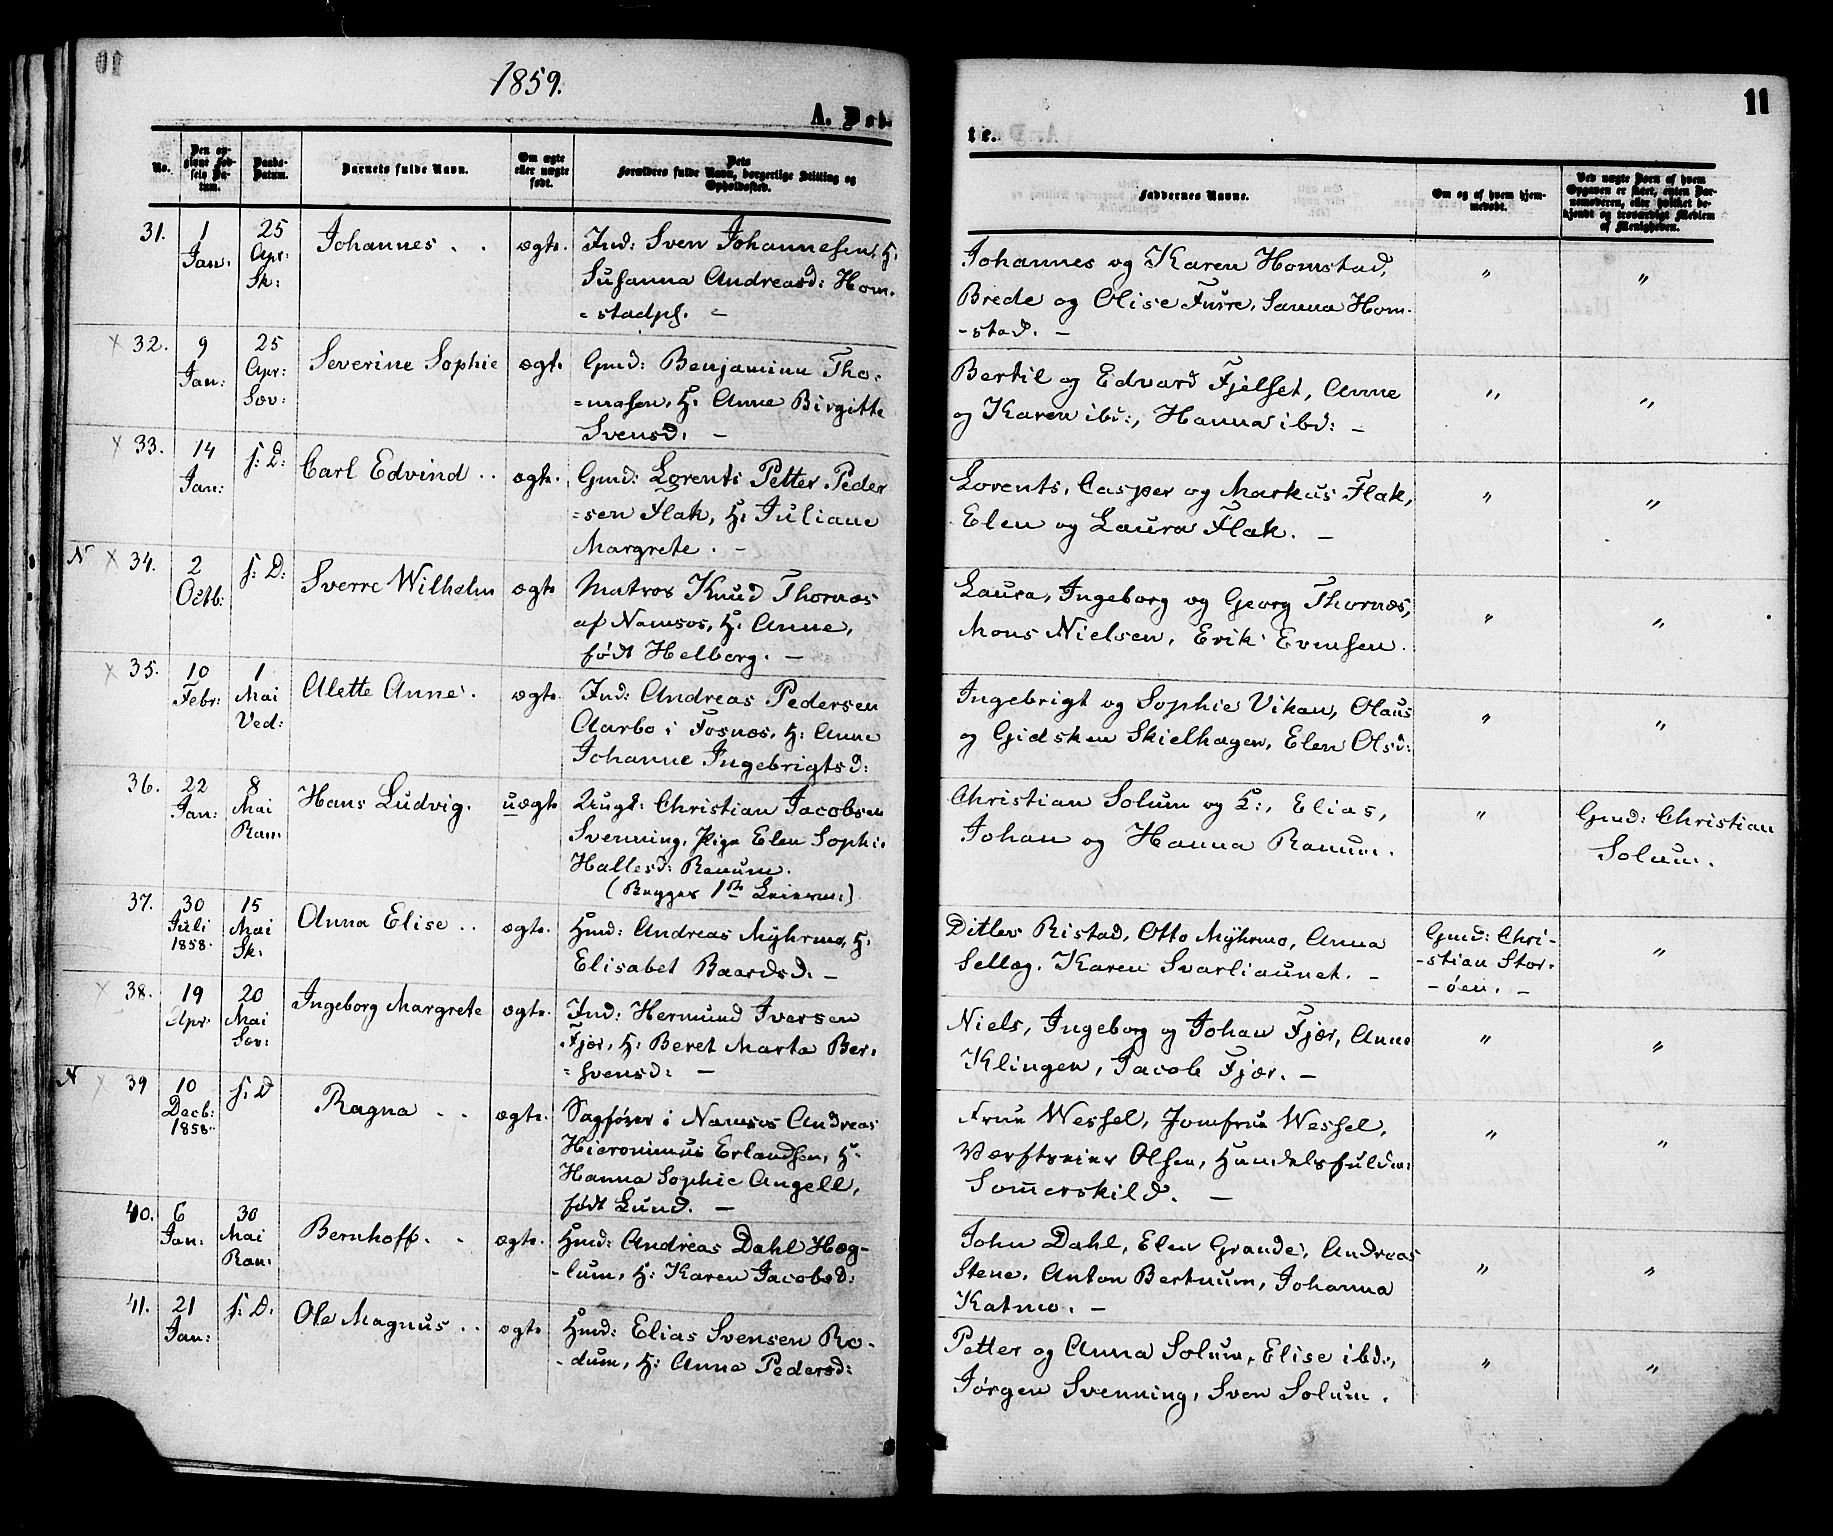 10
1859.
A. Døb-
No.
Den opgivne Fødsels Datum.
Daabs-Datum.
Barnets fulde Navn.
Om ægte eller uægte født.
Forældres fulde Navn, borgerlige Stilling og Opholdssted.
31. 1 Jan. 25 Apr: Sk: Johannes . . ægte. Ind: Sven Johannesen, H:
Susanna Andreasd: Hom-
-stadpl. -
32. 9 Jan: 25 Apr: Sæv: Severine Sophie ægt. Gmd: Benjaminn Tho-
-masen, H: Anne Birgitte
Svensd: -
33. 14 Jan: s: D: Carl Edvind . . ægte. Gmd: Lorents Petter Peder
-sen Flak, H: Juliane
Margrete. -
N 34. 2 Octb: s: D: Sverre Wilhelm ægte Matros Knud Thornæs
af Namsos, H: Anne,
født Helborg. -
35. 10 Febr: 1 Mai Ved: Alette Anne. ægte. Ind: Andreas Pedersen
Aarbo i Fosnæs, H: Anne
Johanne Ingebrigtsd:
36. 22 Jan: 8 Mai Ran: Hans Ludvig. uægte Ungk: Christian Jacobsen
Svenning, Pige Elen Sophi.
Hallesd: Ranum.
(Begges 1ste Leierm:)
37. 30 Juli 1858. 15 Mai Sk: Anna Elise . . ægte. Hmd: Andreas Myhrmo, H:
Elisabet Baardsd: -
38. 19 Apr: 20 Mai Sæv: Ingeborg Margrete ægte. Ind: Hermund Iversen
Fjær, H: Beret Marta Ber-
-svensd: -
N 39 10 Decb: 1858. s: D Ragna . . ægte. Sagfører i Namsos Andreas
Hieronimus Erlandsen, H:
Hanna Sophie Angell,
født Lund. -
40. 6 Jan: 30 Mai Ran: Bernhoff. . ægte. Hmd: Andreas Dahl Hæg-
-lum, H: Karen Jacobsd:
41. 21 Jan: s: D: Ole Magnus . . ægte Hmd: Elias Svensen Ro-
-dum, H: Anne Pedersd:
11
te.
Faddernes Navne.
Om og af hvem hjemmedøbt.
Ved uægte Børn af hvem Opgaven er skeet, enten Barnemoderen, eller hvilket bekjendt og troværdigt Medlem af Menigheden.
Johannes og Karen Homstad, " "
Brede og Olise Furre, Sanna Hom-
-stad. -
Bertil og Edvard Fjelset, Anne " "
og Karen ibd:, Hanna ibd: -
Lorents, Casper og Markus Flak, " "
Elen og Laura Flak. -
Laura, Ingeborg og Georg Thornæs, " "
Mons Nielsen, Erik Evensen.
Ingebrigt og Sophie Vikan, Olaus " "
og Gidsken Skielhagen, Elen Olsd:
Christian Solum og K:, Elias, " Gmd: Christian
Johan og Hanna Ranum. Solum.
Ditlev Ristad, Otto Myhrmo, Anna Gmd: Chri- "
Sellæg, Karen Svarliaunet. - -stian Stor-
-øen. -
Niels, Ingeborg og Johan Fjær, Anne " "
Klingen, Jacob Fjær. -
Frue Wessel, Jomfrue Wessel, " "
Værftseier Olsen, Handelsfuldm:
Sommerskild. -
John Dahl, Elen Grande, Andreas " "
Stene, Anton Bertnum, Johanna
Katmo. -
Petter og Anna Solum, Elise ibd:, " "
Jørgen Svenning, Sven Solum.